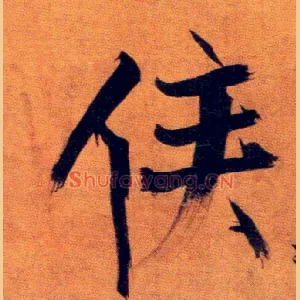 侯
Shufawang.CN